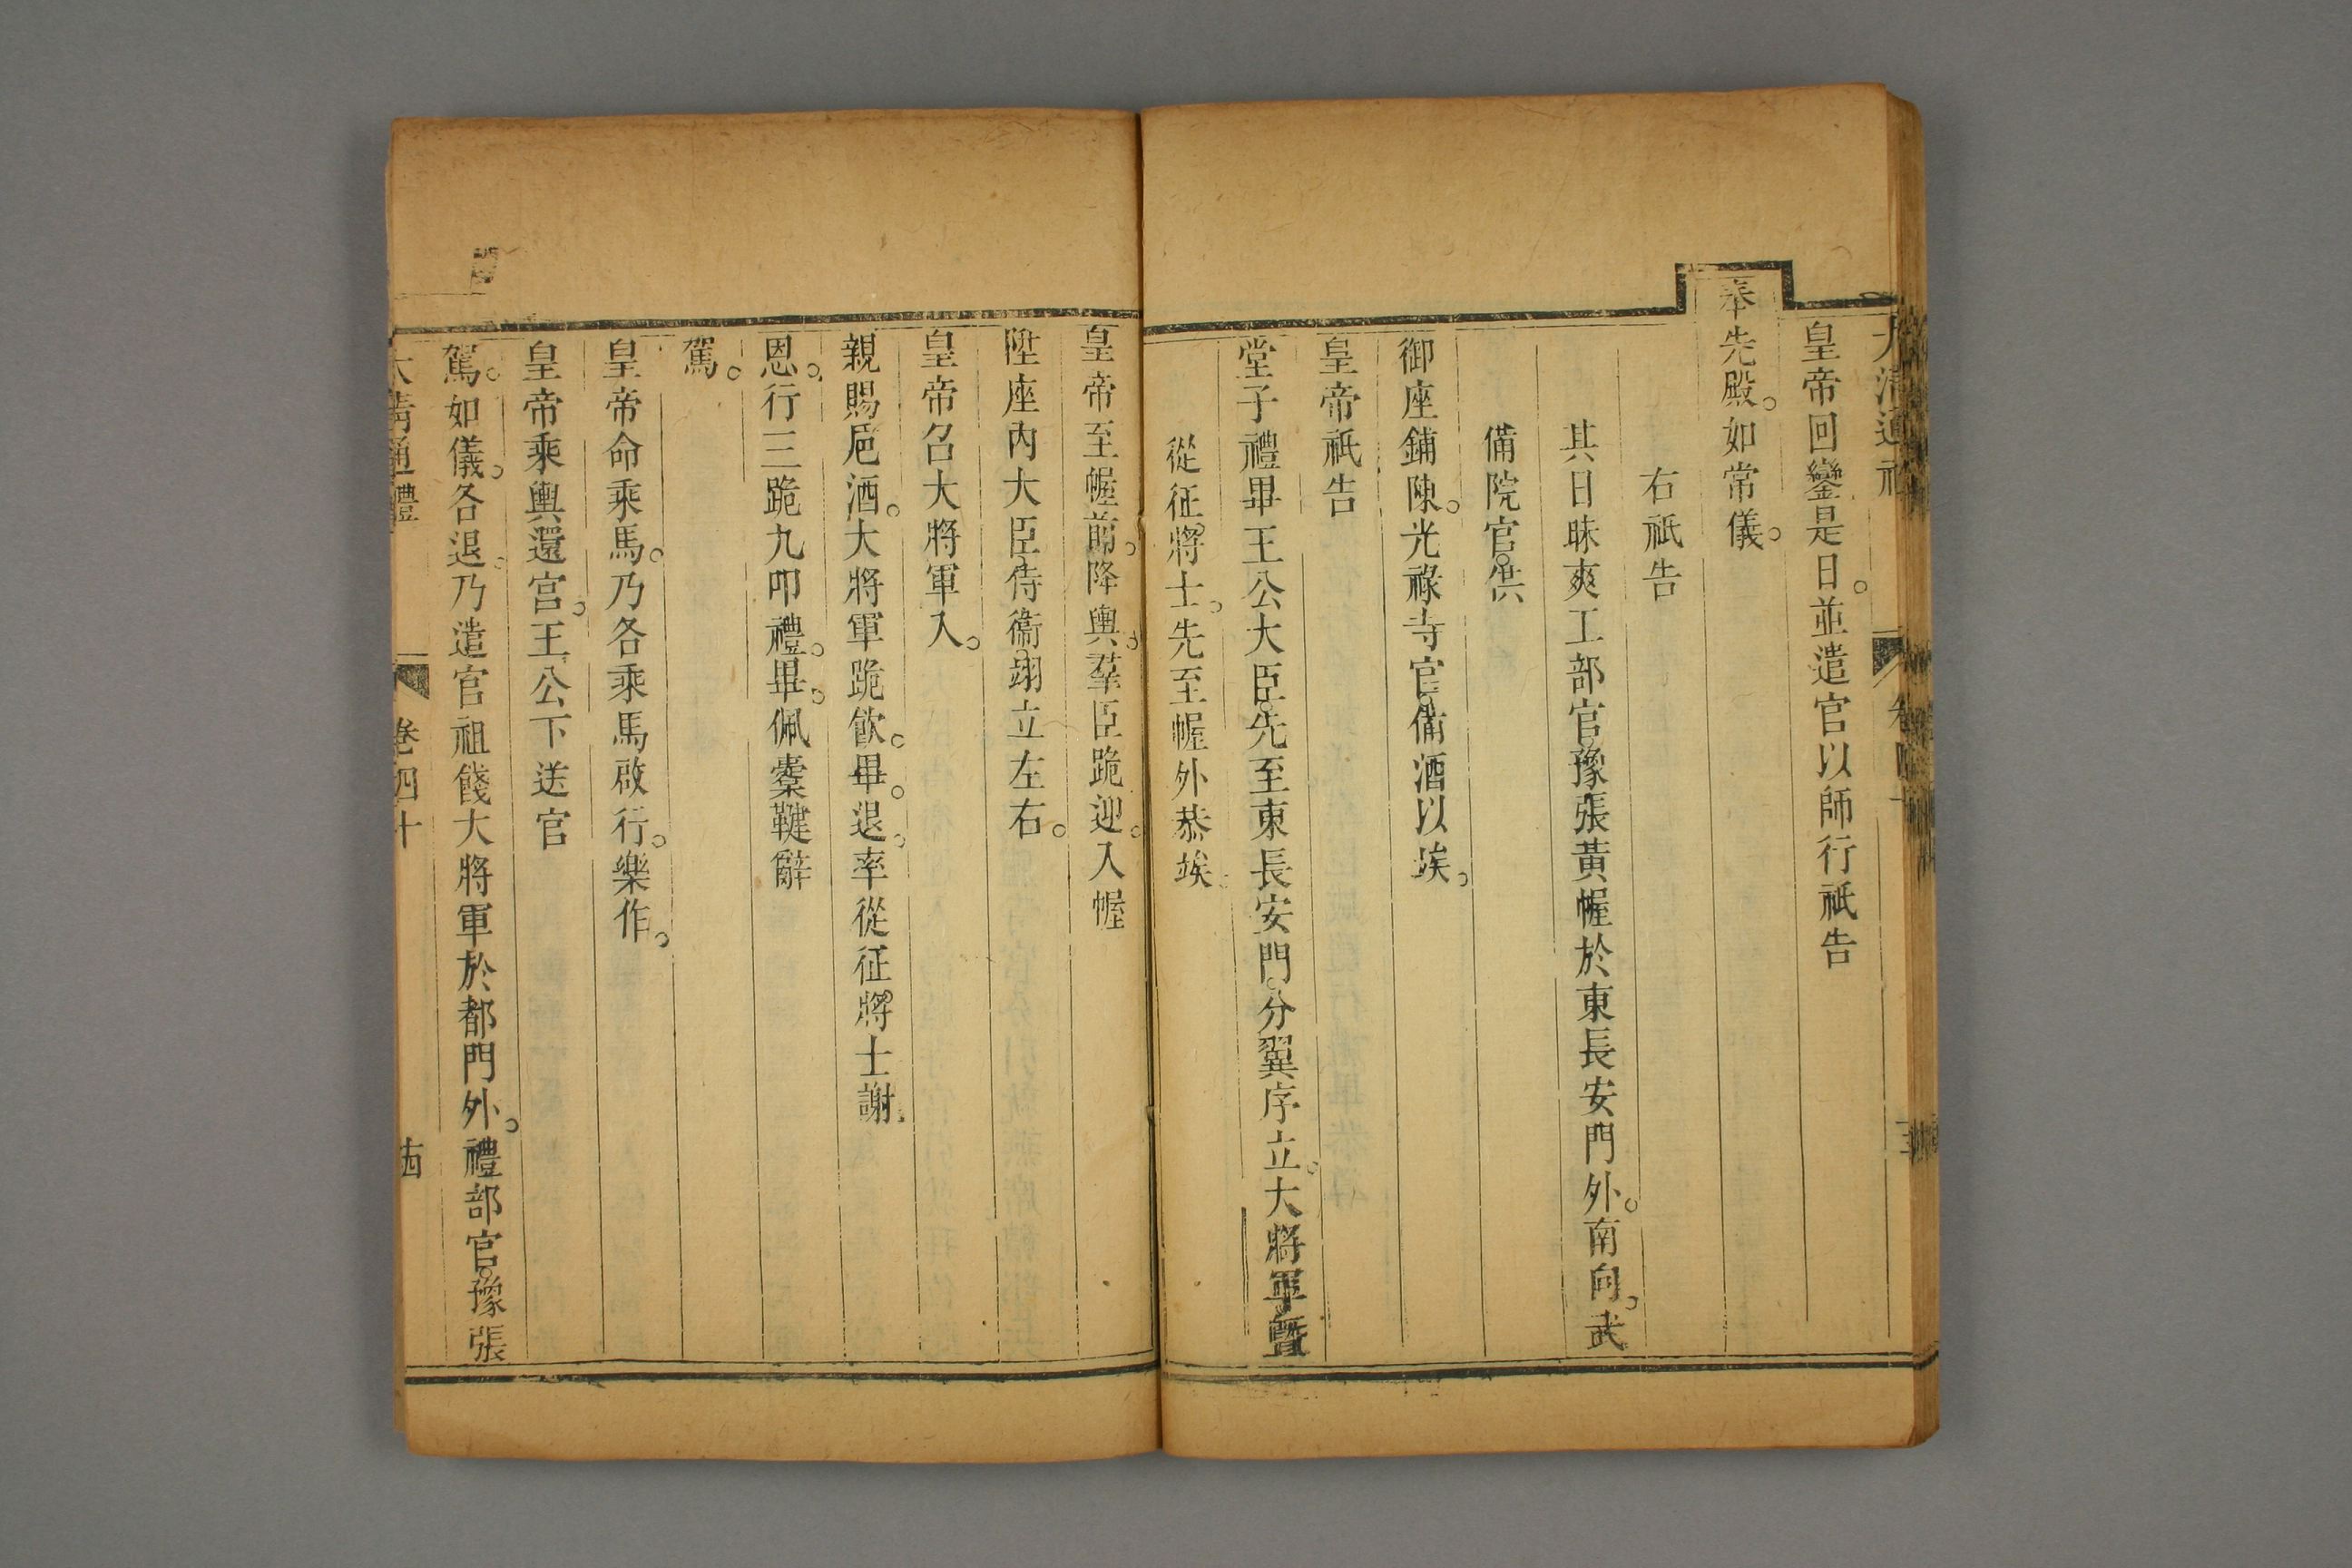 大清通禮 卷四十
皇帝回鑾是日。並遣官以師行祗告
奉先殿。如常儀。
右祗告
其日昧爽工部官。豫張黃幄於東長安門外。南向。武
備院官。供
御座鋪陳。光祿寺官。備酒以竢。
皇帝祗告
堂子禮畢王公大臣。先至東長安門。分翼序立。大將軍暨
從征將士。先至幄外恭竢。
皇帝至幄前。降輿。羣臣跪迎。入幄
陞座內大臣。侍衞。翊立左右。
皇帝召大將軍入。
親賜卮酒。大將軍跪飲。畢。退。率從征將士謝
恩。行三跪九叩禮。畢。佩櫜鞬辭
駕。
皇帝命乘馬。乃各乘馬啟行。樂作。
皇帝乘輿還宮。王公下送官
駕。如儀。各退。乃遣官祖餞大將軍於都門外。禮部官。豫張
大清通禮 卷四十 十四